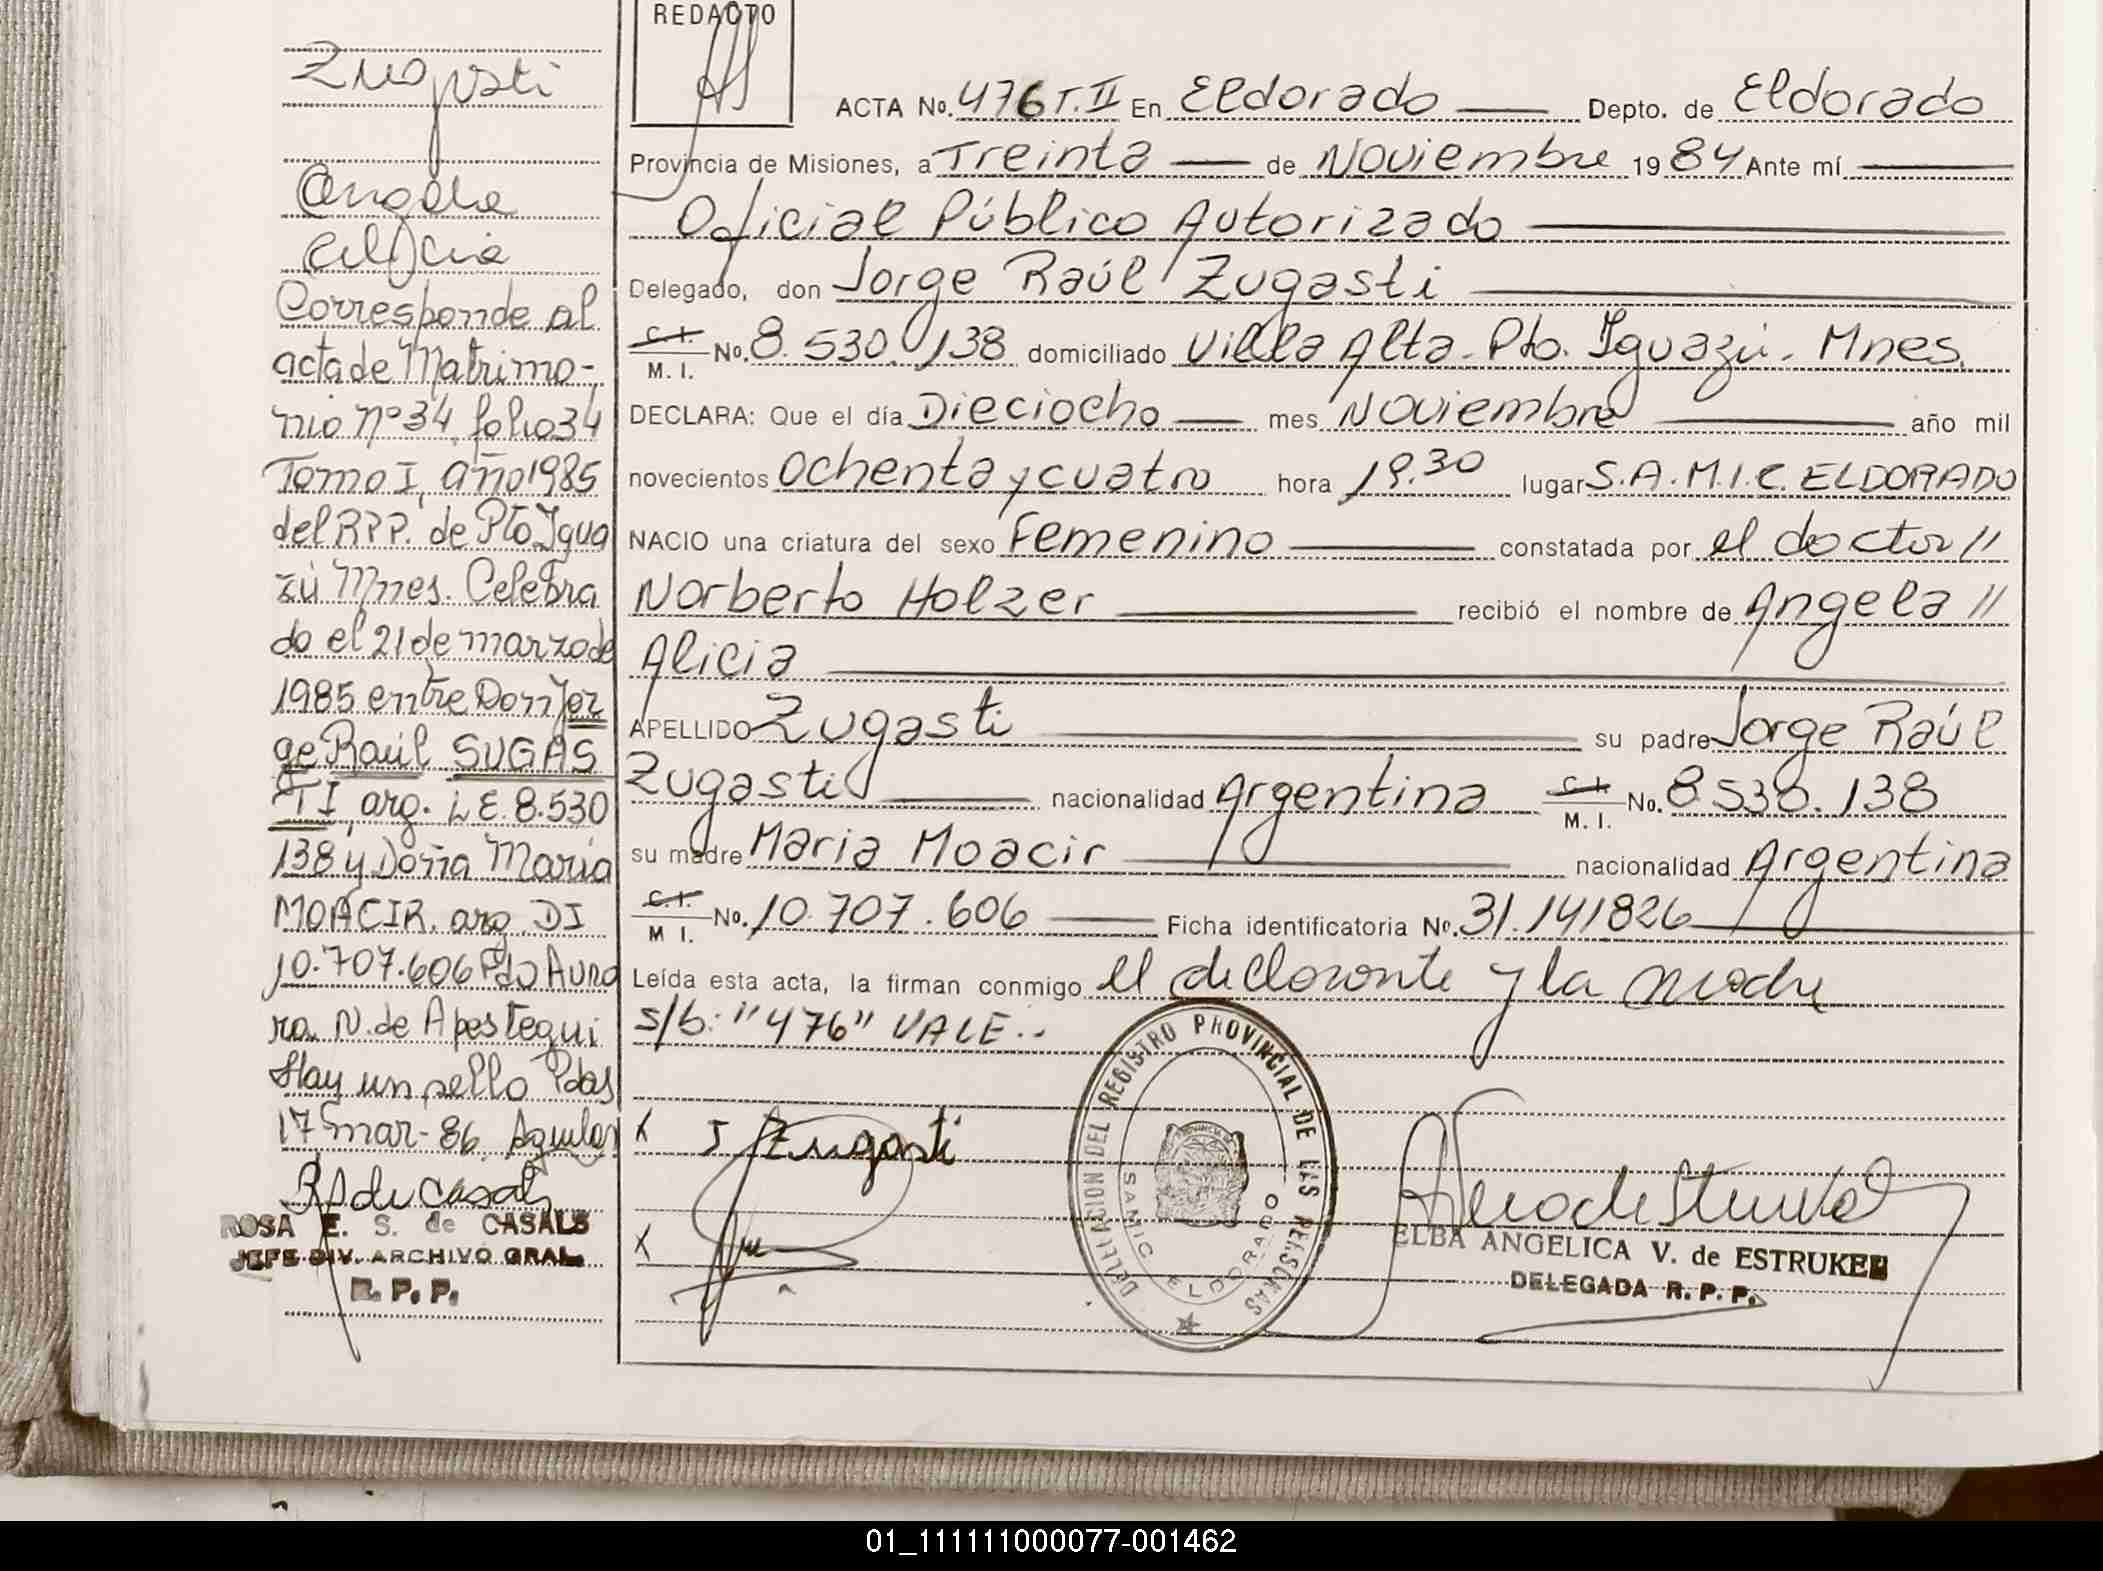 Zugasti
Angela
Alicia
Corresponde al
acta de Matrimo-
nio nº 34 folio 34
Tomo I, año 1985
del RPP. de Pto. Igua
zú Mnes. Celebra
do el 21 de marzo de
1985 entre Don Jor
ge Raúl SUGAS
TI, arg. LE. 8.530
138 y Doña María
MOACIR, arg. DI
10.707.606 Fdo Auro
ra N. de Apestegui
Hay un sello Pdas
17 mar-86.
R S de Casals
ROSA E. S. de CASALS
JEFE DIV. ARCHIVO GRAL.
R. P. P.
REDACTO
ACTA No. 476 T. II En Eldorado Depto. de Eldorado
Provincia de Misiones, a Treinta de Noviembre 1984 Ante mí
Oficial Público Autorizado
Delegado, don Jorge Raúl Zugasti
C. I. M. I. No. 8.530.138 domiciliado Villa Alta - Pto. Iguazú - Mnes.
DECLARA: Que el día Dieciocho mes Noviembre año mil
novecientos Ochenta y cuatro hora 19.30 lugar S.A.M.I.C. ELDORADO
NACIO una criatura del sexo Femenino constatada por el doctor //
Norberto Holzer recibió el nombre de Angela //
Alicia
APELLIDO Zugasti su padre Jorge Raúl
Zugasti nacionalidad Argentina C. I. M. I. No. 8.530.138
su madre Maria Moacir nacionalidad Argentina
C. I. M I. No. 10.707.606 Ficha identificatoria No. 31.141826
Leída esta acta, la firman conmigo el declarante y la madre
s/b: "476" VALE.-
X J Zugasti
X
DELEGACION DEL REGISTRO PROVINCIAL DE LAS PERSONAS
SAMIC ELDORADO
ELBA ANGELICA V. de ESTRUKEL
DELEGADA R. P. P.
01_111111000077-001462